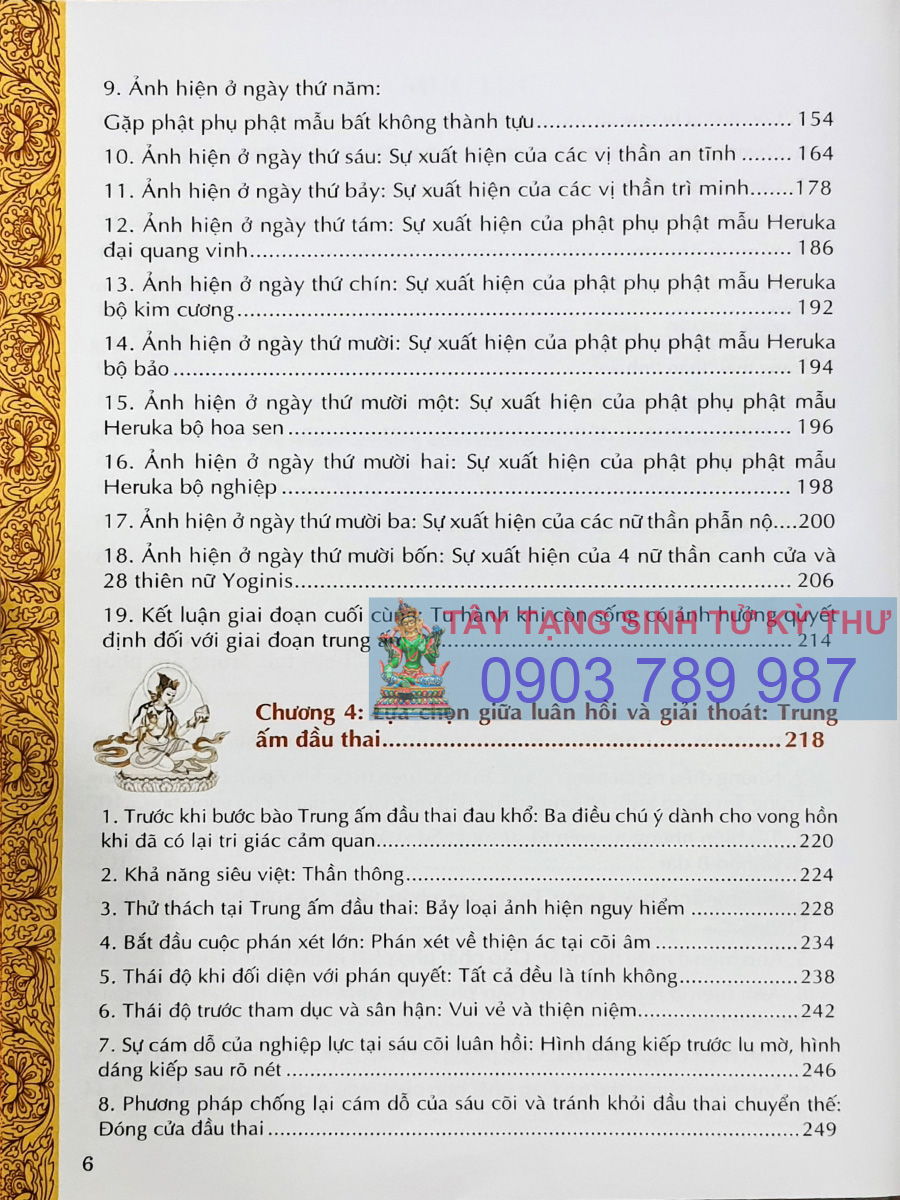 9. Ảnh hiện ở ngày thứ năm:
Gặp phật phụ phật mẫu bất không thành tựu........................................ 154
10. Ảnh hiện ở ngày thứ sáu: Sự xuất hiện của các vị thần an tĩnh ........ 164
11. Ảnh hiện ở ngày thứ bảy: Sự xuất hiện của các vị thần trì minh.......178
12. Ảnh hiện ở ngày thứ tám: Sự xuất hiện của phật phụ phật mẫu Heruka
đại quang vinh..................................................................................... 186
13. Ảnh hiện ở ngày thứ chín: Sự xuất hiện của phật phụ phật mẫu Heruka
bộ kim cương....................................................................................... 192
14. Ảnh hiện ở ngày thứ mười: Sự xuất hiện của phật phụ phật mẫu Heruka
bộ bảo ................................................................................................ 194
15. Ảnh hiện ở ngày thứ mười một: Sự xuất hiện của phật phụ phật mẫu
Heruka bộ hoa sen ............................................................................... 196
16. Ảnh hiện ở ngày thứ mười hai: Sự xuất hiện của phật phụ phật mẫu
Heruka bộ nghiệp ................................................................................ 198
17. Ảnh hiện ở ngày thứ mười ba: Sự xuất hiện của các nữ thần phẫn nộ....200
18. Ảnh hiện ở ngày thứ mười bốn: Sự xuất hiện của 4 nữ thần canh cửa và
28 thiên nữ Yoginis............................................................................... 206
19. Kết luận giai đoạn cuối cùng: Tu hành khi còn sống có ảnh hưởng quyết
định đối với giai đoạn trung ........ 214
TÂY TẠNG SINH TỬ KỲ THƯ
0903 789 987
Chương 4: Lựa chọn giữa luân hồi và giải thoát: Trung
ấm đầu thai.........................................................218
1. Trước khi bước bào Trung ấm đầu thai đau khổ: Ba điều chú ý dành cho vong hồn
khi đã có lại tri giác cảm quan................................................................220
2. Khả năng siêu việt: Thần thông............................................................224
3. Thử thách tại Trung ấm đầu thai: Bảy loại ảnh hiện nguy hiểm .................228
4. Bắt đầu cuộc phán xét lớn: Phán xét về thiện ác tại cõi âm ......................234
5. Thái độ khi đối diện với phán quyết: Tất cả đều là tính không...................238
6. Thái độ trước tham dục và sân hận: Vui vẻ và thiện niệm..........................242
7. Sự cám dỗ của nghiệp lực tại sáu cõi luân hồi: Hình dáng kiếp trước lu mờ, hình
dáng kiếp sau rõ nét ...............................................................................246
8. Phương pháp chống lại cám dỗ của sáu cõi và tránh khỏi đầu thai chuyển thế:
Đóng cửa đầu thai ..................................................................................249
6